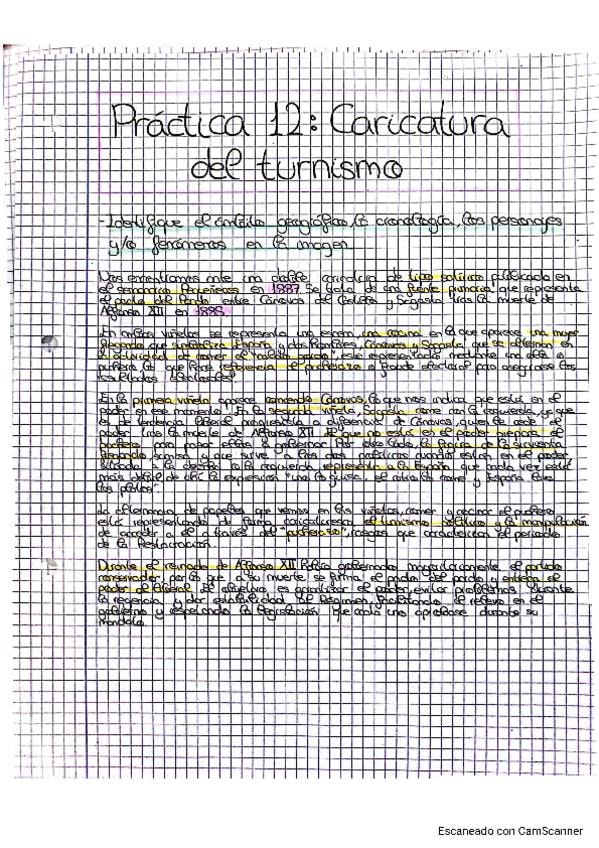 Práctica 12: Caricatura
del turnismo
- Identifique el ámbito geográfico, la cronología, los personajes
y/o fenómenos en la imagen
Nos encontramos ante una doble caricatura de tipo satírico publicada en
el semanario en 1887. Se trata de una fuente primaria que representa
el pacto del Pardo entre Cánovas del Castillo y Sagasta tras la muerte de
Alfonso XII en 1885.
En ambas viñetas se representa una escena, una cocina en la que aparece una mujer
que simboliza España y dos hombres, Cánovas y Sagasta que se alternan en
la actividad de comer el este representado mediante una olla o
puchero lo que hace referencia al pucherazo o fraude electoral para asegurarse los
resultados
En la primera viñeta aparece comiendo Cánovas, lo que nos indica que está en el
poder en ese momento. En la segunda viñeta, Sagasta come con la izquierda, ya que
es de tendencia liberal progresista a diferencia de Cánovas, quien le cede el
poder tras la muerte de Alfonso XII. El que no está en el poder prepara el
puchero para poder gobernar. Por otro lado, la figura de la sirvienta
y que sirve a los dos políticos cuando están en el poder
situada a la derecha o la izquierda, representa a la España que cada vez está
más débil de ahí la expresión y España
los platos".
La alternancia de papeles que vemos en las viñetas, comer y cocinar el puchero
está representando de forma el turnismo político y la manipulación
de acceder a él a través del "pucherazo", rasgos que caracterizan el periodo
de la Restauración.
Durante el reinado de Alfonso XII había gobernado mayoritariamente el partido
conservador, por lo que a su muerte se firma el pacto del pardo y entrega el
poder al liberal. El objetivo es garantizar el poder, evitar problemas durante
la regencia y dar estabilidad al régimen, facilitando el relevo en el
gobierno y respetando la legislación que cada uno aprobase durante su
mandato.
Escaneado con CamScanner